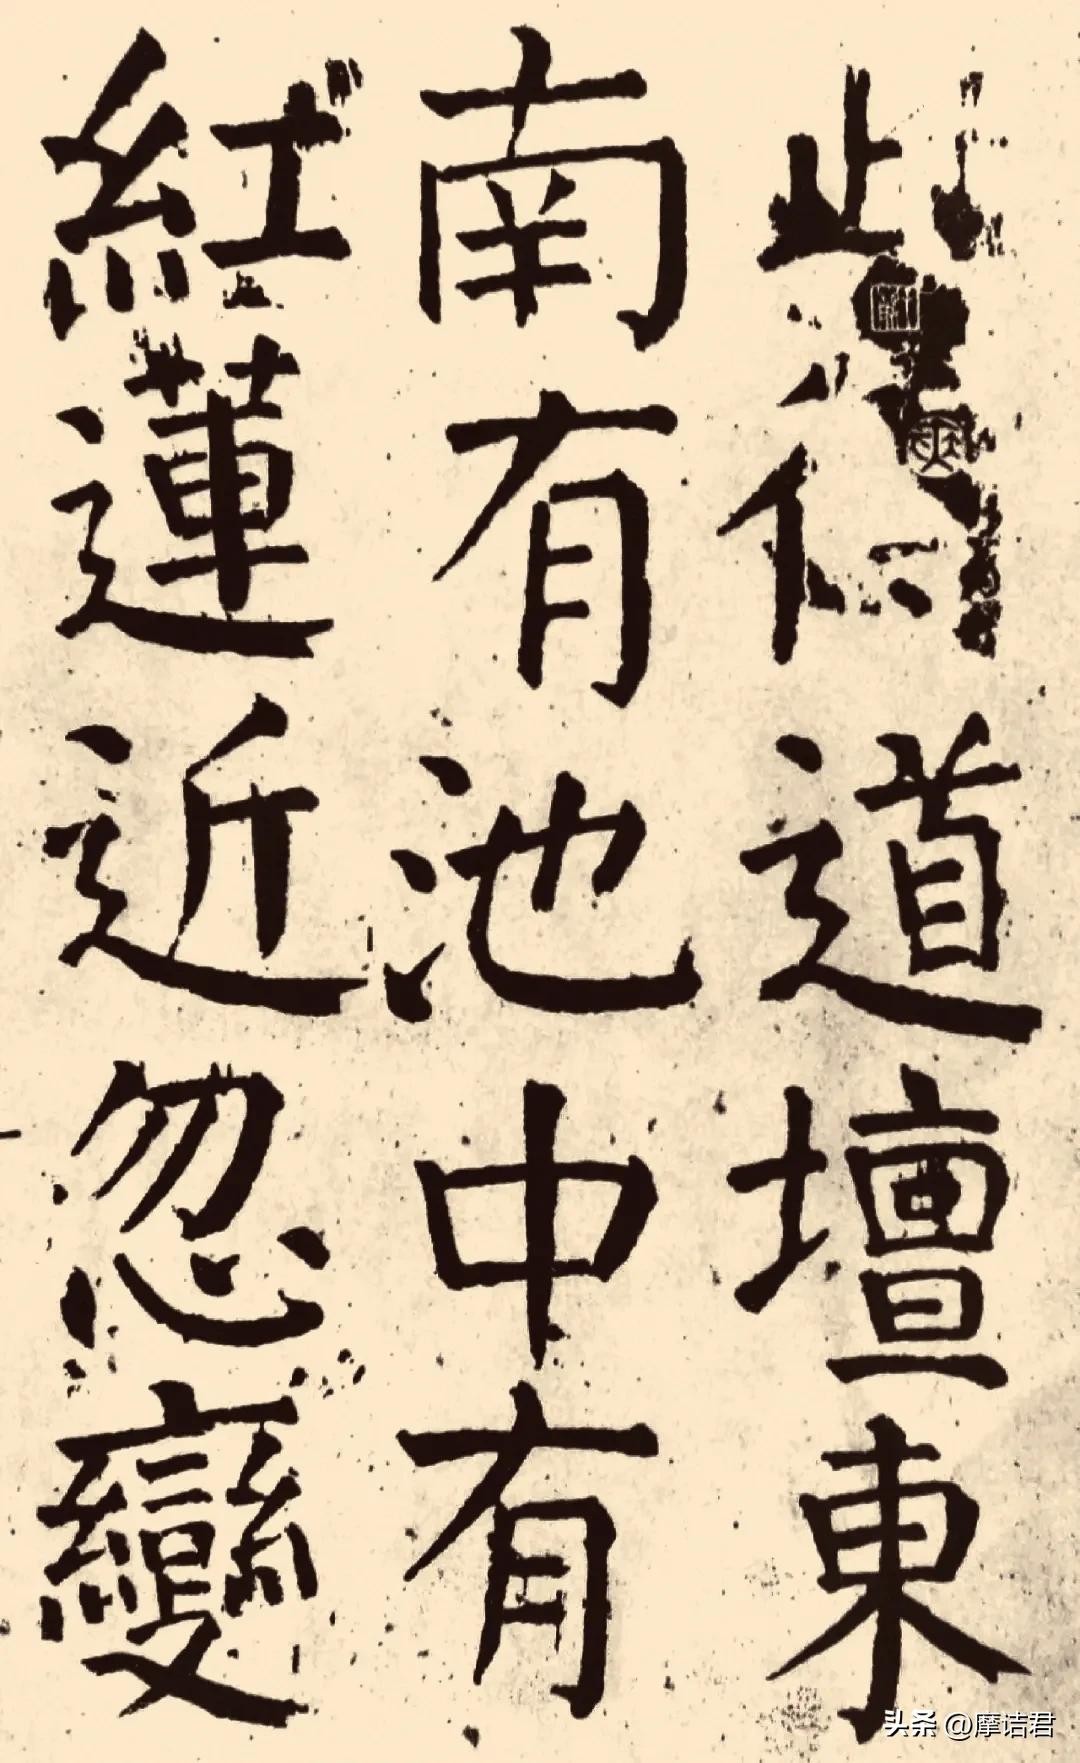 此道壇東
南有池中有
紅蓮近忽變
头条 @摩诘君